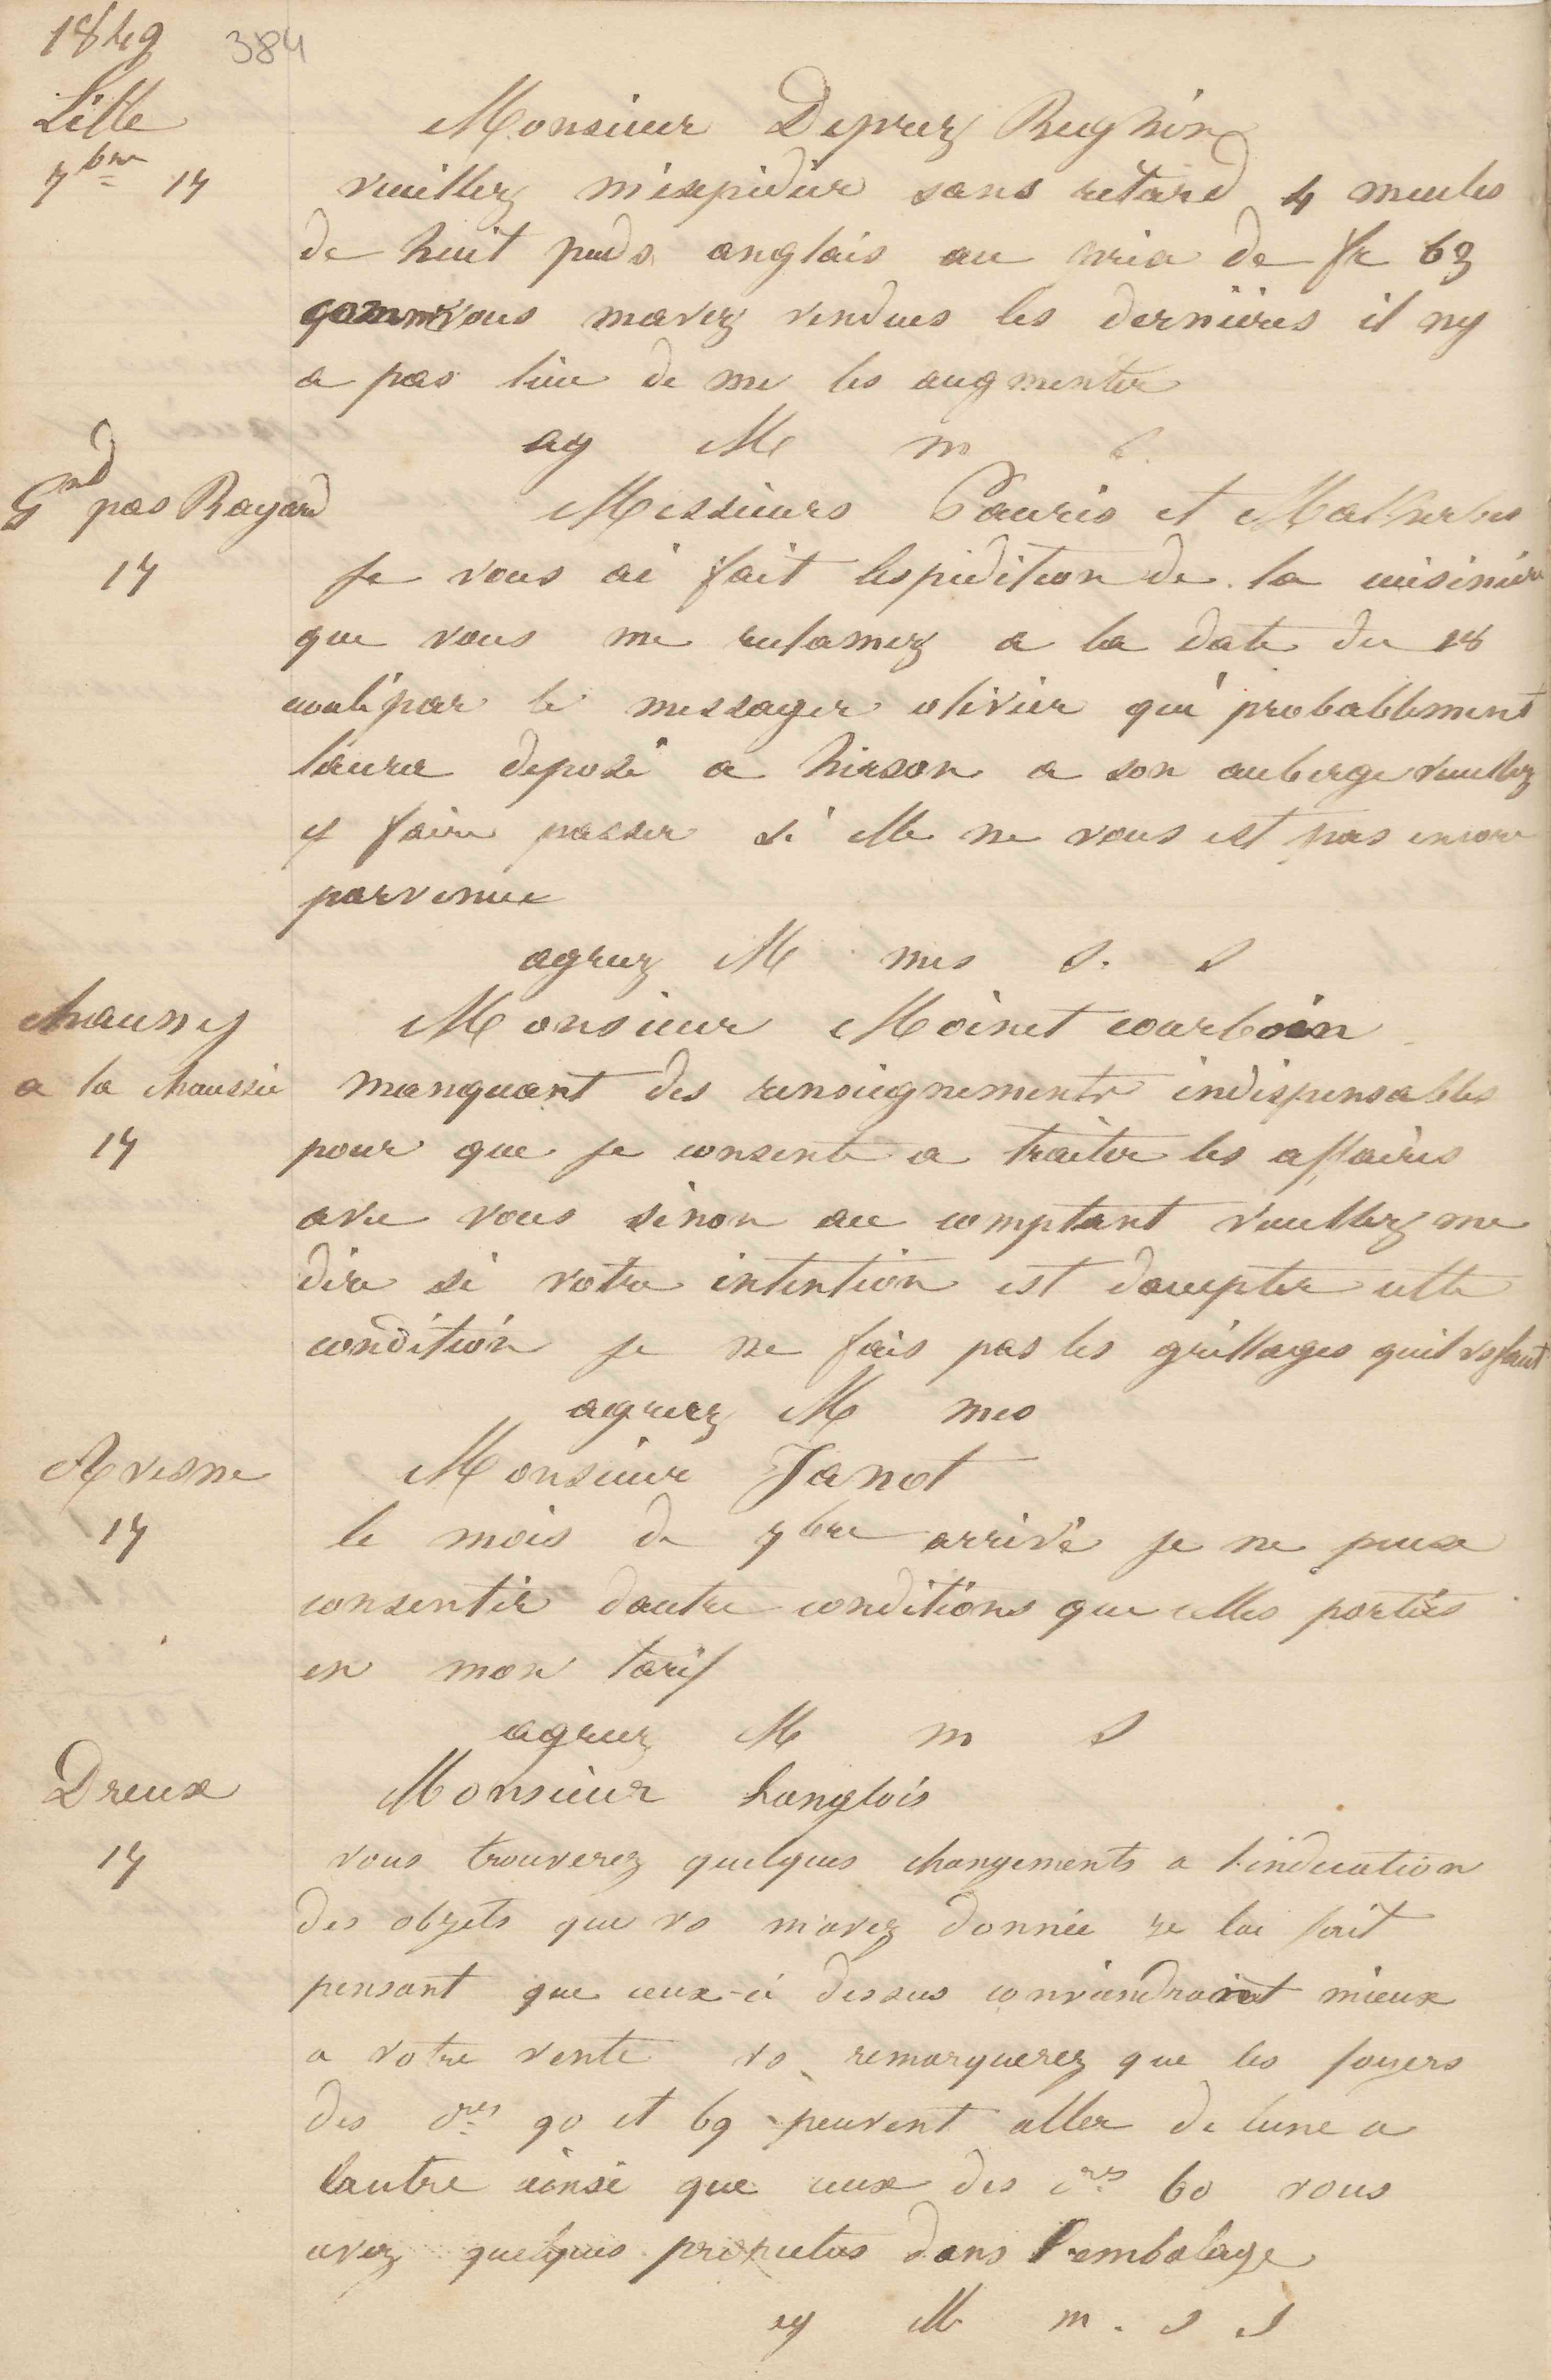 1849 384
Lille
7bre 17
Monsieur Deprez Reghin
veuillez m'expedier sans retard 4 meules
de huit pieds anglais au prix de fr 63
comme vous mavez vendues les dernières il ny
a pas lieu de me les augmenter
ag M m s
Gnd pas Bayard
17
Messieurs Pauris et Malherbes
Je vous ai fait lespidition de la cuisinière
que vous me reclamez a la date du 18
coulé par le messager olivier qui probablement
laura deposé a hirson a son auberge veuillez
y faire passer si elle ne vous est pas encore
parvenue
agreez M mes S. S
chauny
a la chaussée
17
Monsieur Moinet courboin
manquant des renseignements indispensables
pour que je consente a traiter les affaires
avec vous sinon au comptant veuillez me
dire si votre intention est daccepter cette
condition je ne fais pas les grillages quil vs faut
agreez M mes
Avesne
17
Monsieur Janot
le mois de 7bre arrivé je ne peux
consentir dautre conditions que celles portées
en mon tarif
agreez M m S
Dreux
17
Monsieur Langlois
vous trouverez quelques changements a l'indication
des objets que vs m'avez donnée je lai fait
pensant que ceux-ci dessus conviendraient mieux
a votre vente vs remarquerez que les foyers
des cres 90 et 69 peuvent aller de lune a
lautre ainsi que ceux des cres 60 vous
avez quelques prospectus dans l'embalage
ag M m. S S